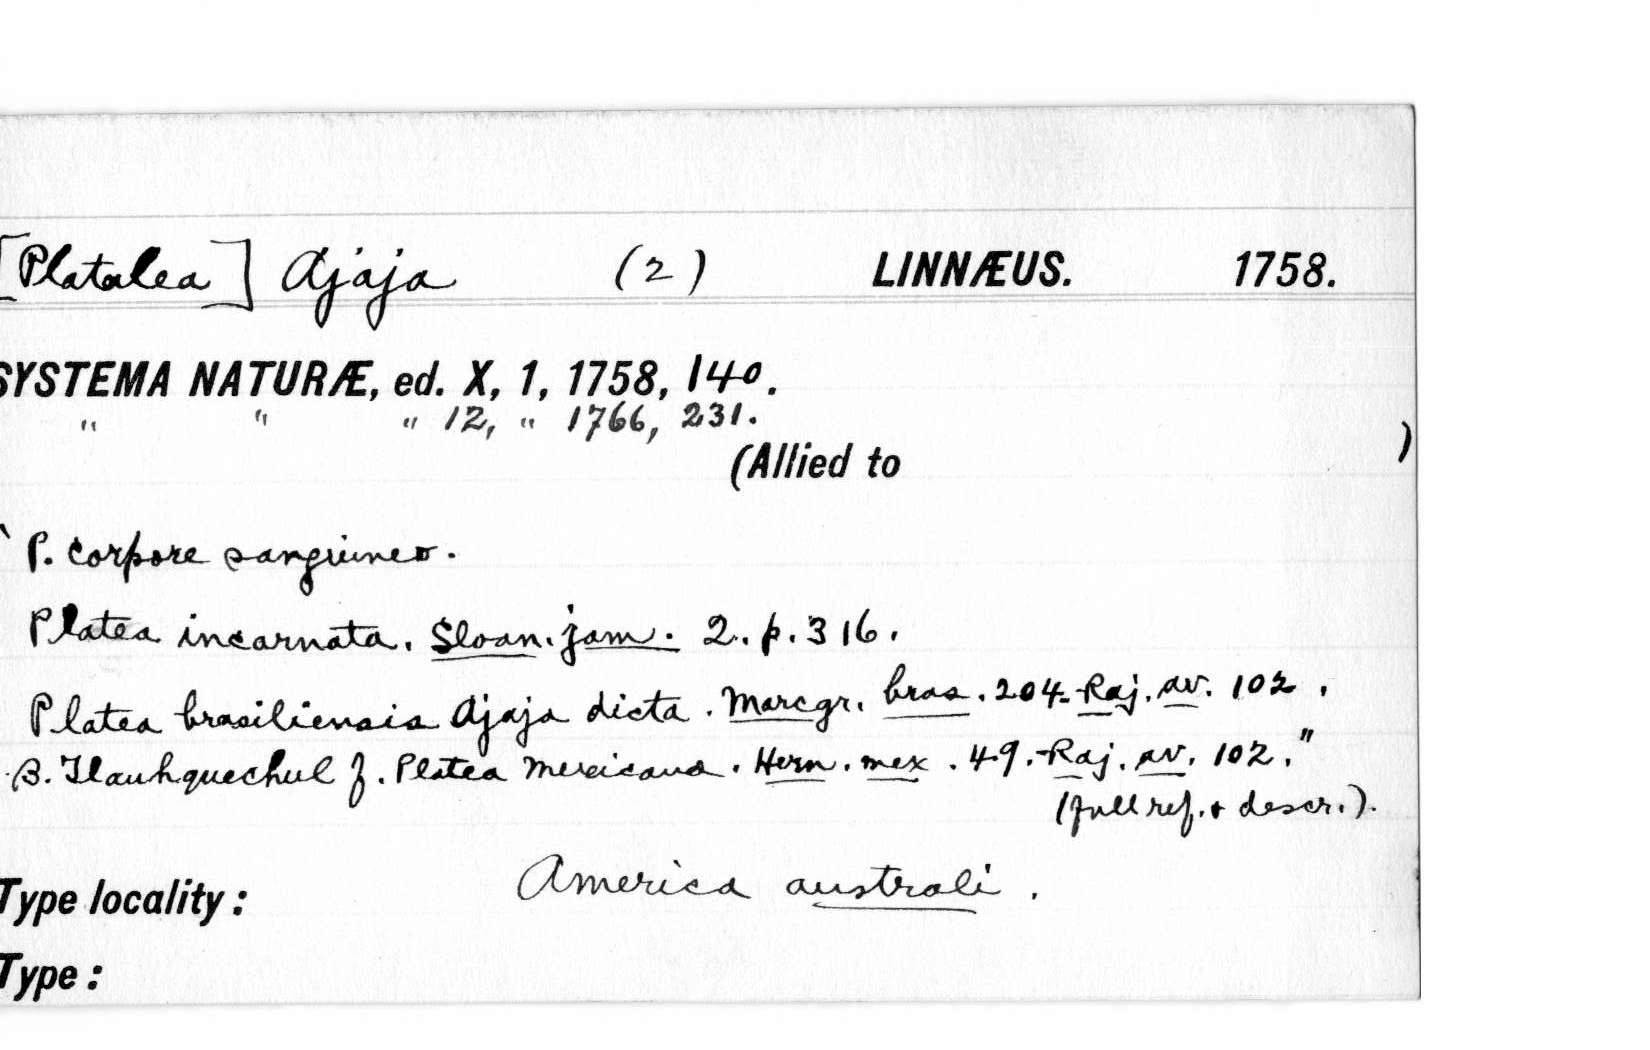 [Platalea] Ajaja (2) LINNÆUS. 1758.
SYSTEMA NATURÆ, ed. X, 1, 1758, 140.
" " " 12, " 1766, 231.
(Allied to )
P. corpore sanguineo.
Platea incarnata. Sloan. jam. 2. p. 316.
Platea brasiliensis Ajaja dicta. Marcgr. bras. 204. Raj. av. 102.
B. Tlauhquechul f. Platea mexicana. Hern. mex. 49. Raj. av. 102."
(full ref. & descr.).
Type locality: America australi.
Type: